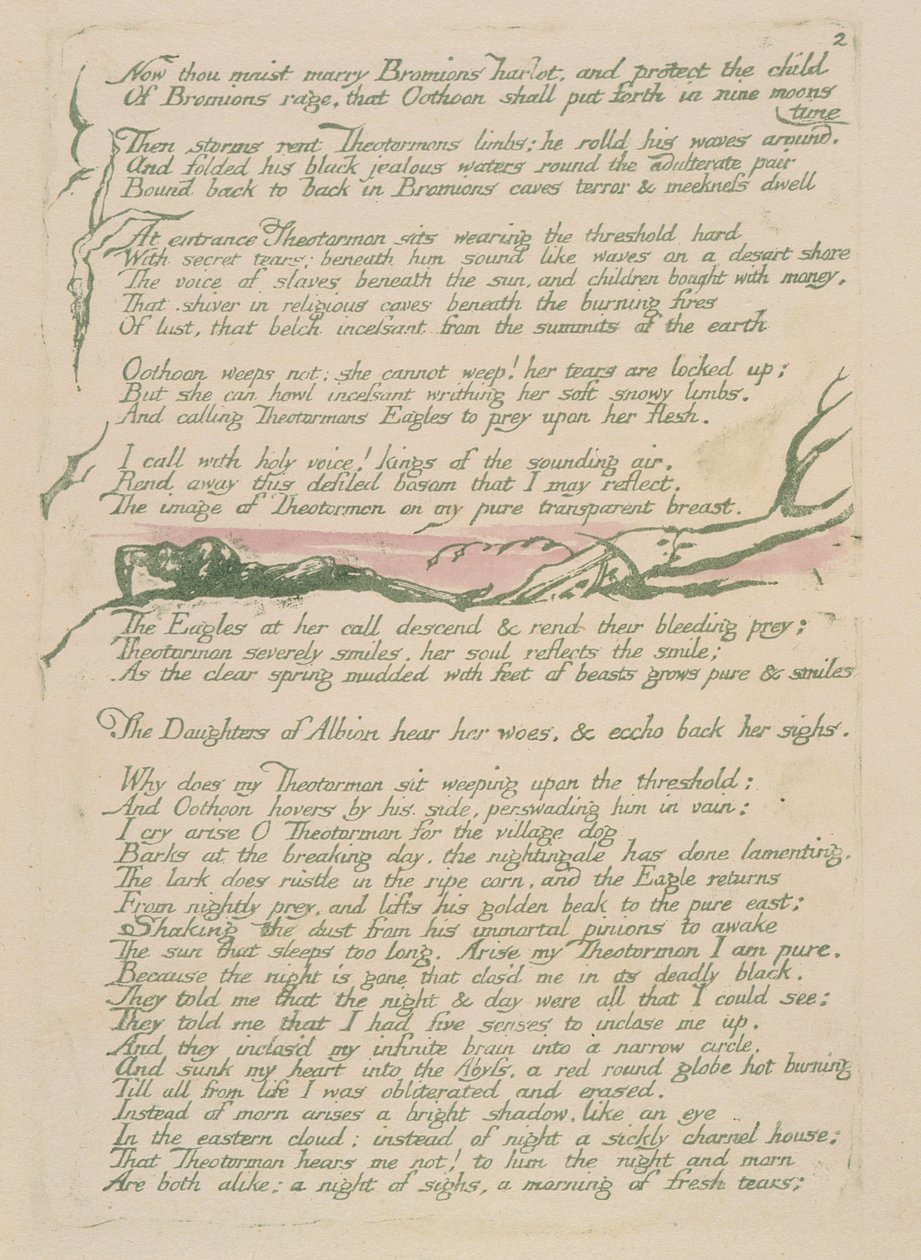 2
Now thou maist marry Bromions harlot, and protect the child
Of Bromions rage, that Oothoon shall put forth in nine moons
time
Then storms rent Theotormons limbs; he rolld his waves around.
And folded his black jealous waters round the adulterate pair
Bound back to back in Bromions caves terror & meekneſs dwell
At entrance Theotormon sits wearing the threshold hard
With secret tears; beneath him sound like waves on a desart shore
The voice of slaves beneath the sun, and children bought with money,
That shiver in religious caves beneath the burning fires
Of lust, that belch inceſsant from the summits of the earth
Oothoon weeps not: she cannot weep! her tears are locked up;
But she can howl inceſsant writhing her soft snowy limbs.
And calling Theotormons Eagles to prey upon her flesh.
I call with holy voice! kings of the sounding air,
Rend away this defiled bosom that I may reflect.
The image of Theotormon on my pure transparent breast.
The Eagles at her call descend & rend their bleeding prey;
Theotormon severely smiles. her soul reflects the smile;
As the clear spring mudded with feet of beasts grows pure & smiles
The Daughters of Albion hear her woes. & eccho back her sighs.
Why does my Theotormon sit weeping upon the threshold;
And Oothoon hovers by his side, perswading him in vain:
I cry arise O Theotormon for the village dog
Barks at the breaking day. the nightingale has done lamenting.
The lark does rustle in the ripe corn, and the Eagle returns
From nightly prey, and lifts his golden beak to the pure east;
Shaking the dust from his immortal pinions to awake
The sun that sleeps too long. Arise my Theotormon I am pure.
Because the night is gone that clos'd me in its deadly black.
They told me that the night & day were all that I could see;
They told me that I had five senses to inclose me up.
And they inclos'd my infinite brain into a narrow circle.
And sunk my heart into the Abyſs, a red round globe hot burning
Till all from life I was obliterated and erased.
Instead of morn arises a bright shadow, like an eye
In the eastern cloud: instead of night a sickly charnel house;
That Theotormon hears me not! to him the night and morn
Are both alike: a night of sighs, a morning of fresh tears;